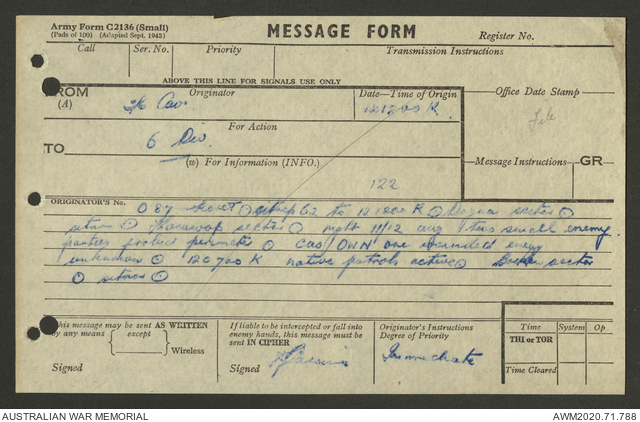 Army Form C2136 (Small)
(Pads of 100) (Adopted Sept. 1942)
MESSAGE FORM
Register No.
Call Ser. No. Priority Transmission Instructions
ABOVE THIS LINE FOR SIGNALS USE ONLY
FROM Originator Date—Time of Origin Office Date Stamp
(A) Cav 121200 K
File
For Action
TO 6 Div
(W) For Information (INFO.) Message Instructions GR
122
ORIGINATOR'S No.
O 87 secret ⊙ sitrep 62 to 121200 K ⊙ sector ⊙
sitnor ⊙ sector ⊙ night 11/12 aug small enemy
parties probed perimeter ⊙ cas OWN one wounded enemy
unknown ⊙ 120700 K native patrols active ⊙ sector
⊙ sitnor ⊙
This message may be sent AS WRITTEN
by any means except
Wireless
Signed
If liable to be intercepted or fall into
enemy hands, this message must be
sent IN CIPHER
Signed
Originator's Instructions
Degree of Priority
Immediate
Time System Op
THI or TOR
Time Cleared
AUSTRALIAN WAR MEMORIAL
AWM2020.71.788